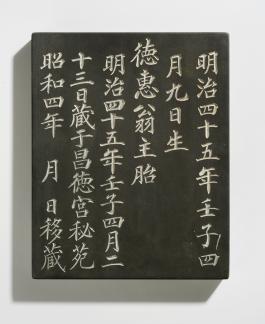 明治四十五年壬子四
月九日生
徳惠翁主胎
明治四十五年壬子四月二
十三日藏于昌徳宮秘苑
昭和四年 月 日移藏